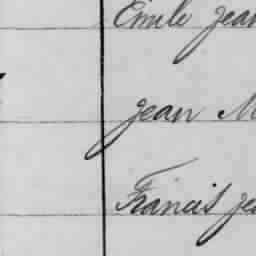 Emile Jean
Jean M
Francis Je